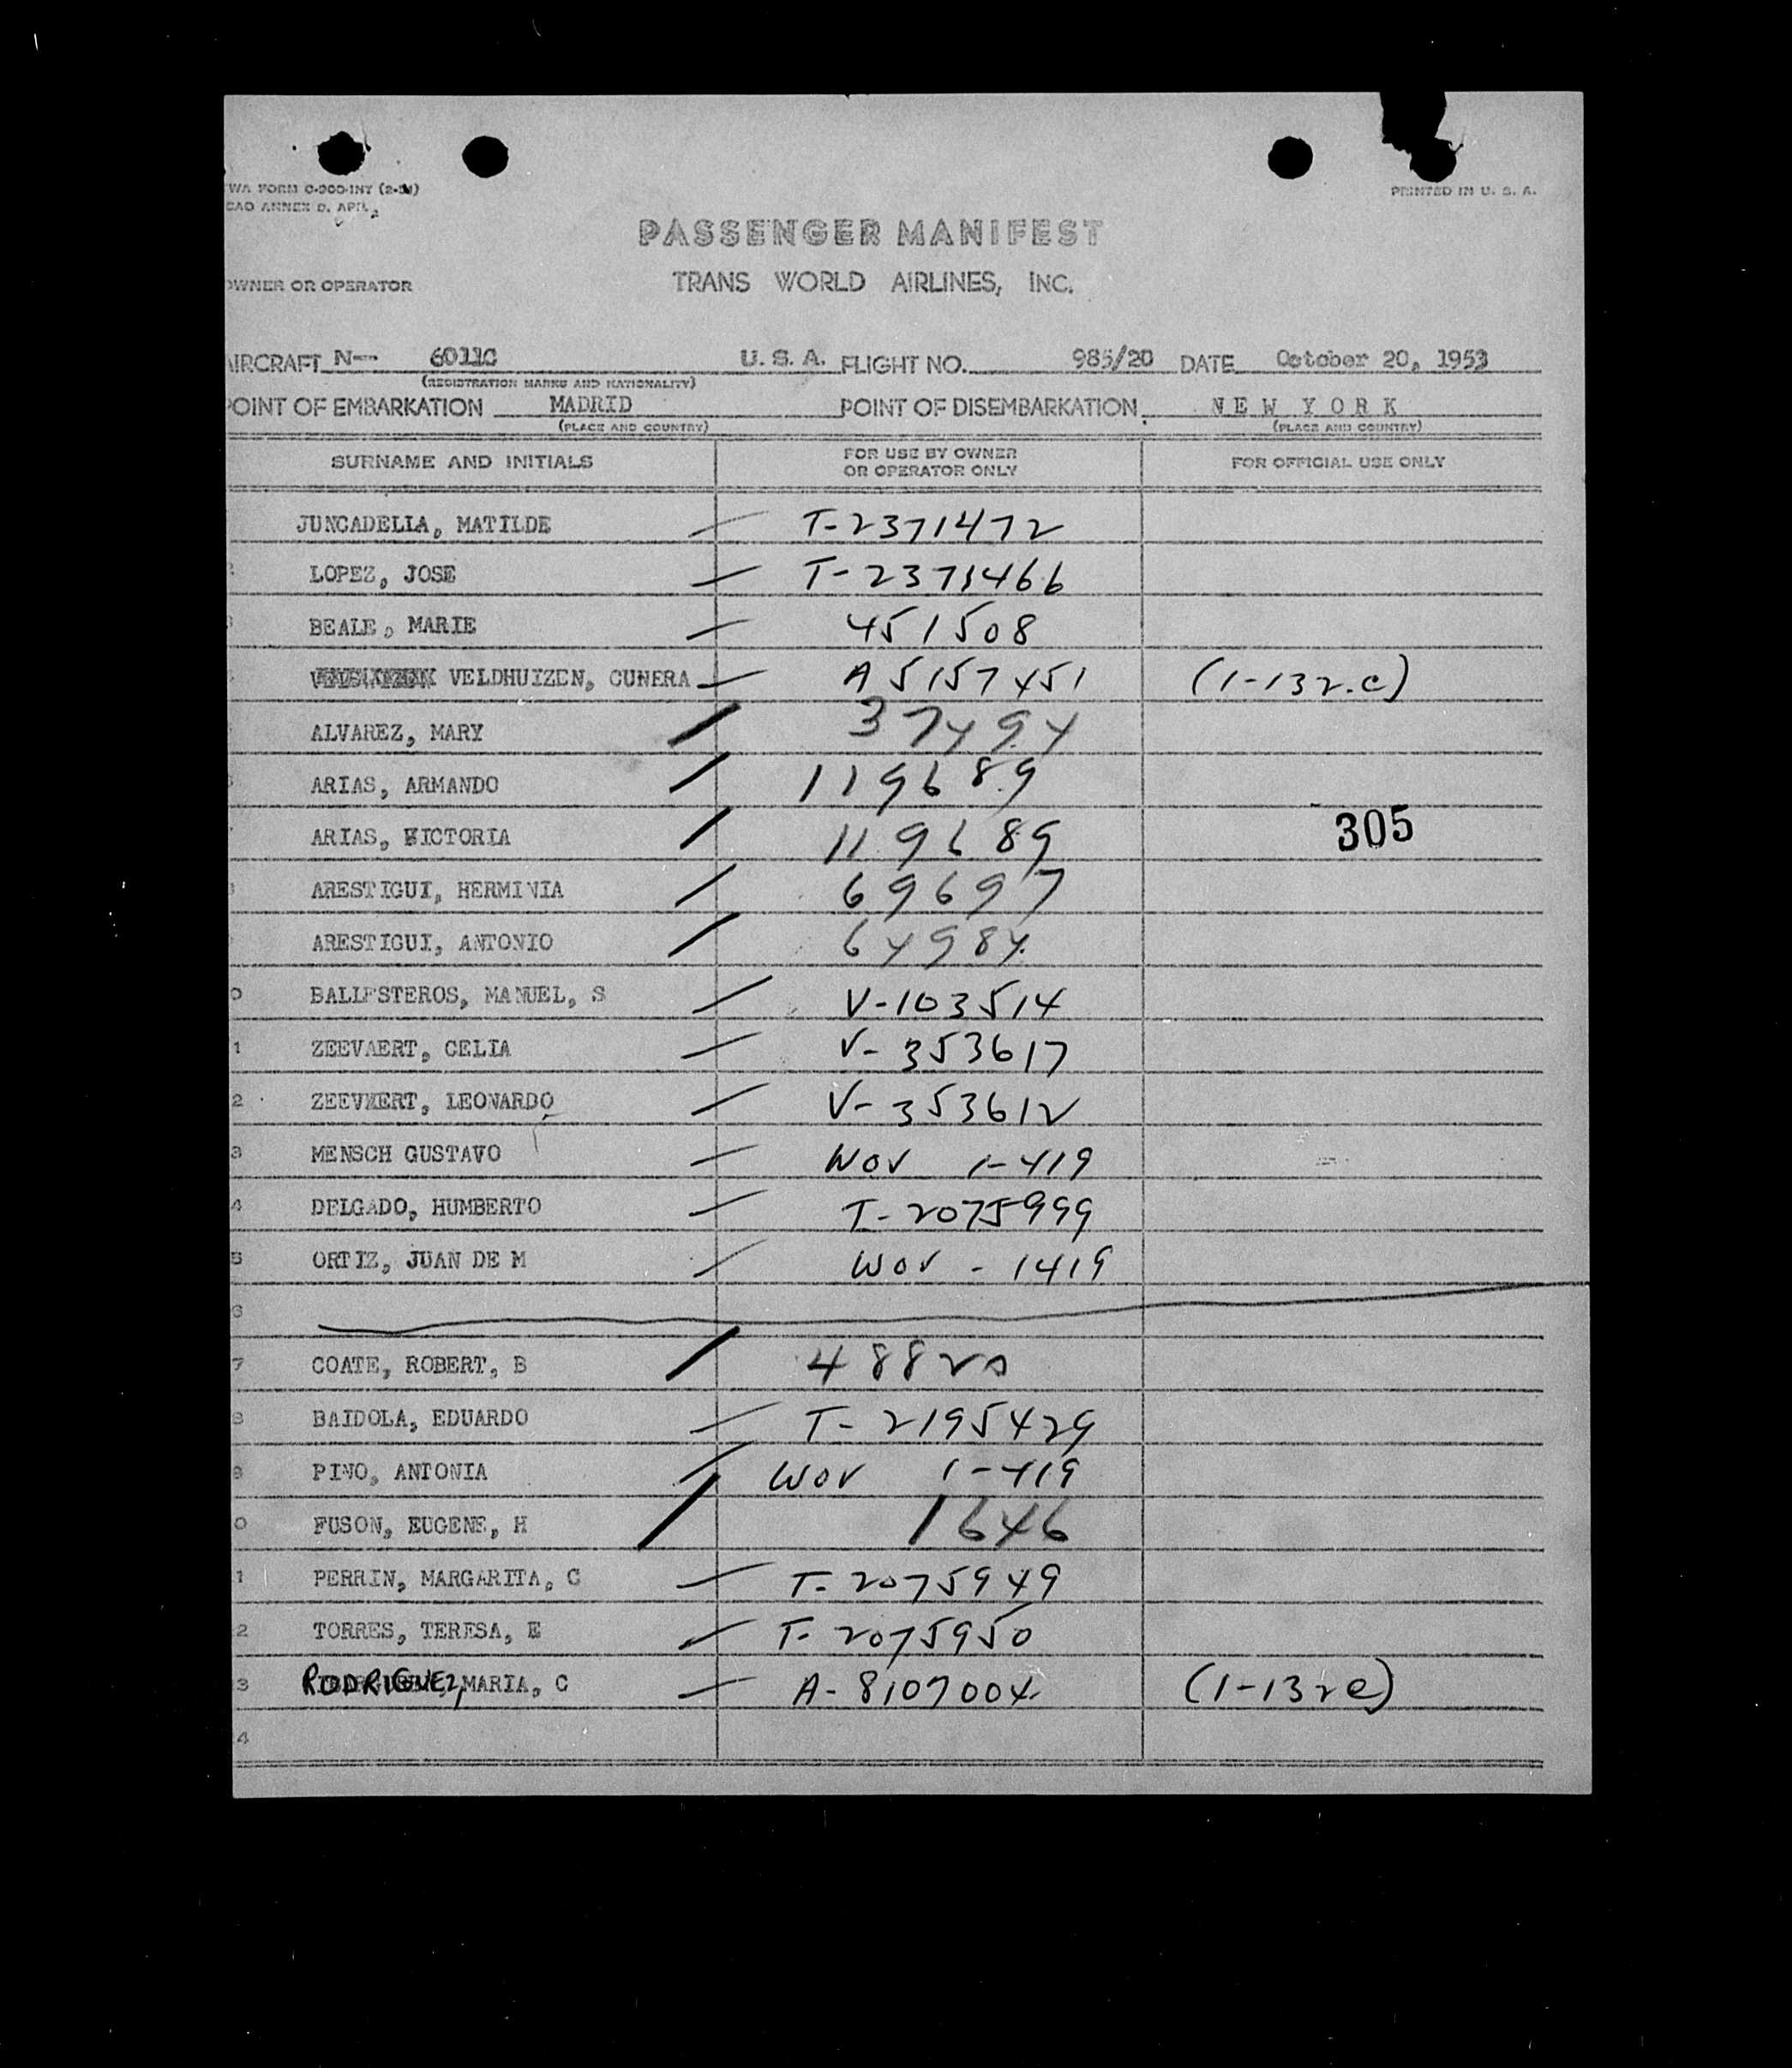 WA FORM O-300-INT (2-51)
CAO ANNEX 9, APR.
PRINTED IN U. S. A.
PASSENGER MANIFEST
OWNER OR OPERATOR TRANS WORLD AIRLINES, INC.
AIRCRAFT N-- 6011C U. S. A. FLIGHT NO. 985/20 DATE October 20, 1953
(REGISTRATION MARKS AND NATIONALITY)
POINT OF EMBARKATION MADRID POINT OF DISEMBARKATION NEW YORK
(PLACE AND COUNTRY) (PLACE AND COUNTRY)
SURNAME AND INITIALS FOR USE BY OWNER OR OPERATOR ONLY FOR OFFICIAL USE ONLY
JUNCADELLA, MATILDE T-2371472
LOPEZ, JOSE T-2371466
BEALE, MARIE 451508
VELDHUIZEN, CUNERA A 5157451 (1-132.c)
ALVAREZ, MARY 37494
ARIAS, ARMANDO 119689
ARIAS, VICTORIA 119689 305
ARESTIGUI, HERMINIA 69697
ARESTIGUI, ANTONIO 64984
0 BALLESTEROS, MANUEL, S V-103514
1 ZEEVAERT, CELIA V-353617
2 ZEEVAERT, LEONARDO V-353612
3 MENSCH GUSTAVO WOV 1-419
4 DELGADO, HUMBERTO T-2075999
5 ORTIZ, JUAN DE M WOV - 1419
6
7 COATE, ROBERT, B 48820
8 BAIDOLA, EDUARDO T-2195429
9 PINO, ANTONIA WOV 1-419
0 FUSON, EUGENE, H 1646
1 PERRIN, MARGARITA, C T-2075949
2 TORRES, TERESA, E T-2075950
3 RODRIGUEZ, MARIA, C A-8107004 (1-132c)
4